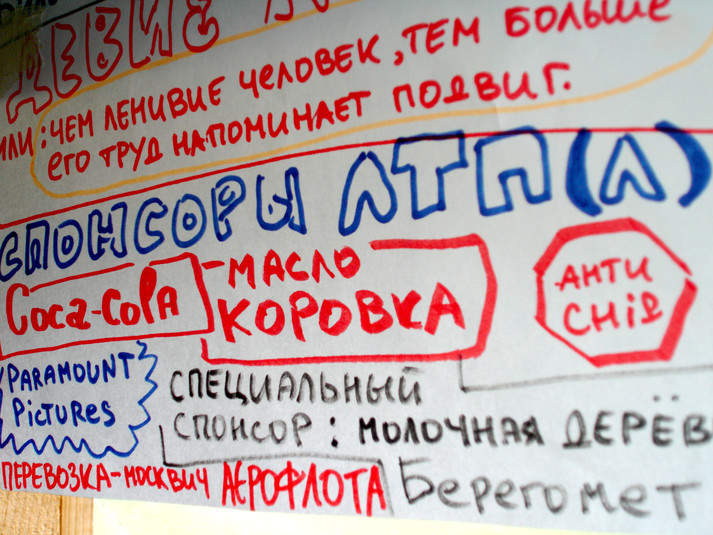 ДЕВИЗ
ИЛИ: ЧЕМ ЛЕНИВИЕ ЧЕЛОВЕК, ТЕМ БОЛЬШЕ
ЕГО ТРУД НАПОМИНАЕТ ПОДВИГ.
СПОНСОРЫ ЛТП(Л)
Coca-Cola
-МАСЛО
КОРОВКА
АНТИ
СНІД
PARAMOUNT
PiCTURES
СПЕЦИАЛЬНЫЙ
СПОНСОР: МОЛОЧНАЯ ДЕРЁВ
ПЕРЕВОЗКА-МОСКВИЧ АЄРОФЛОТА
Берегомет